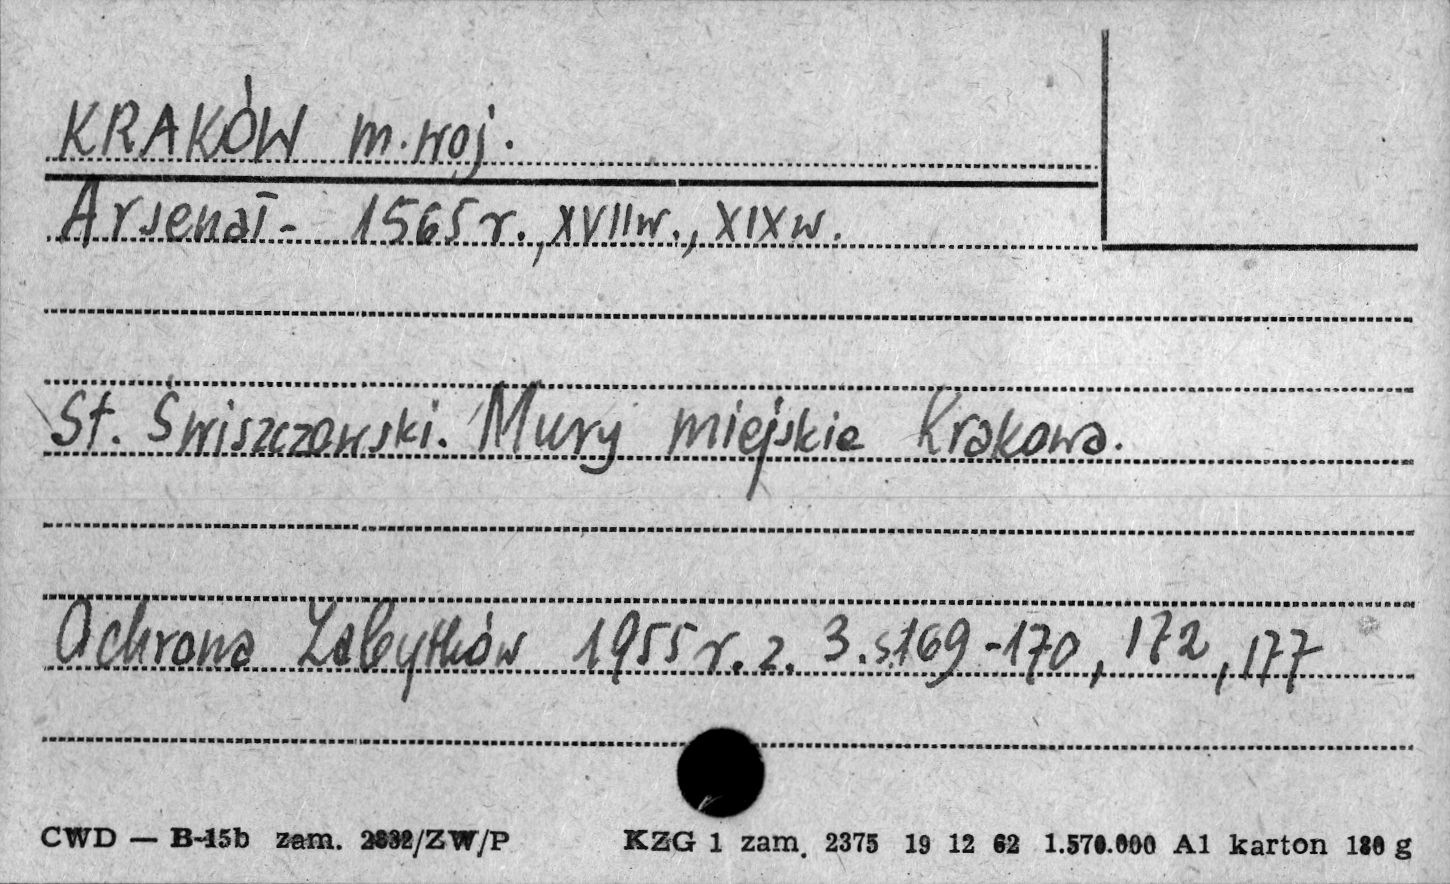 KRAKÓW m.woj.
Arsenał - 1565 r., XVII w., XIX w.
St. Świszczowski. Mury miejskie Krakowa.
Ochrona Zabytków 1955 r. z. 3. s.169-170, 172, 177
CWD — B-15b zam. 2632/ZW/P KZG 1 zam. 2375 19 12 62 1.570.000 A1 karton 180 g